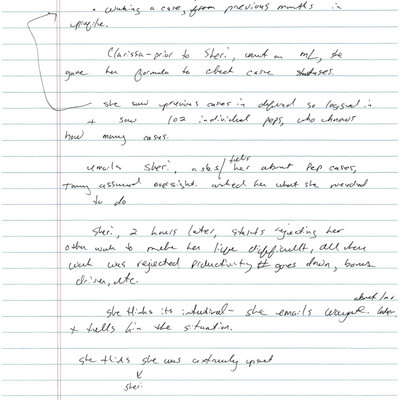 • working a case, from previous months in
pipeline.
Clarissa - prior to Sheri, went on mL, she
gave her formula to check case statuses.
she saw previous cases in deferred so logged in
+ saw 102 individual peps, who knows
how many cases.
emails Sheri, asks/tells her about pep cases,
assumed oversight. asked her what she needed
to do
Sheri, 2 hours later, starts rejecting her
other work to make her life difficult, all when
work was rejected productivity # goes down, bonus
driven, etc.
she thinks its intentional - she emails later about
+ tells him the situation.
she thinks she was extremely upset
Sheri